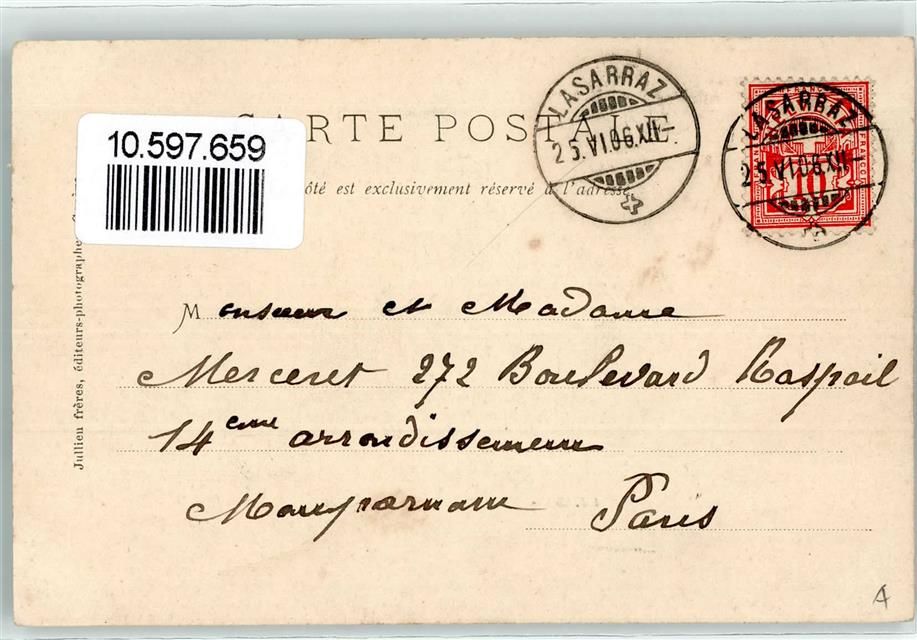 CARTE POSTALE
10.597.659
côté est exclusivement réservé à l'adresse.
LASARRAZ
25.VI.06.XII-
LASARRAZ
25.VI.06.XII-
FRANCO
10
Jullien frères, éditeurs-photographe
Monsieur et Madame
Merceret 272 Boulevard Raspail
14eme arrondissement
Montparnasse Paris
A